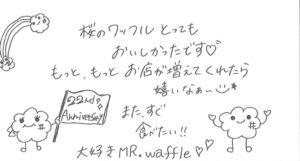 桜のワッフル とっても
おいしかったです♡
もっと、もっと お店が増えてくれたら
嬉いなぁー
22nd
Anniversary
また、すぐ
食べたい!!
大好き MR.waffle